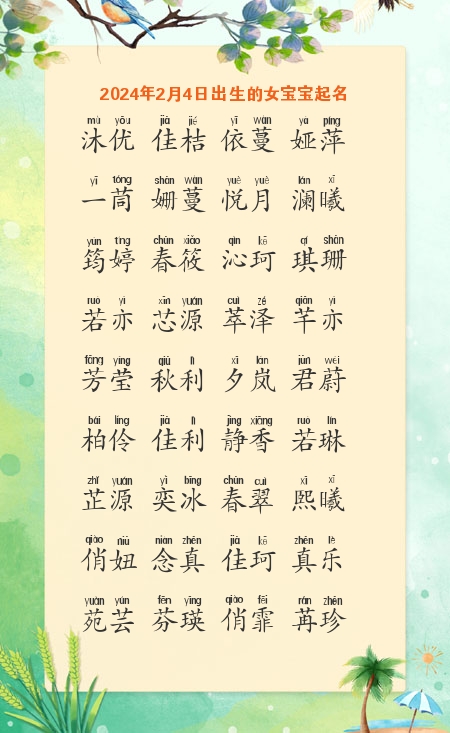 2024年2月4日出生的女宝宝起名
mù yōu jiā jié yī wàn yà píng
沐优 佳桔 依蔓 娅萍
yī tóng shān wàn yuè yuè lán xī
一茼 姗蔓 悦月 澜曦
yún tíng chūn xiǎo qìn kē qí shān
筠婷 春筱 沁珂 琪珊
ruò yì xīn yuán cuì zé qiān yì
若亦 芯源 萃泽 芊亦
fāng yíng qiū lì xī lán jūn wèi
芳莹 秋利 夕岚 君蔚
bǎi líng jiā lì jìng xiāng ruò lín
柏伶 佳利 静香 若琳
zhǐ yuán yì bīng chūn cuì xī xī
芷源 奕冰 春翠 熙曦
qiào niū niàn zhēn jiā kē zhēn lè
俏妞 念真 佳珂 真乐
yuàn yún fēn yīng qiào fēi rǎn zhēn
苑芸 芬瑛 俏霏 苒珍